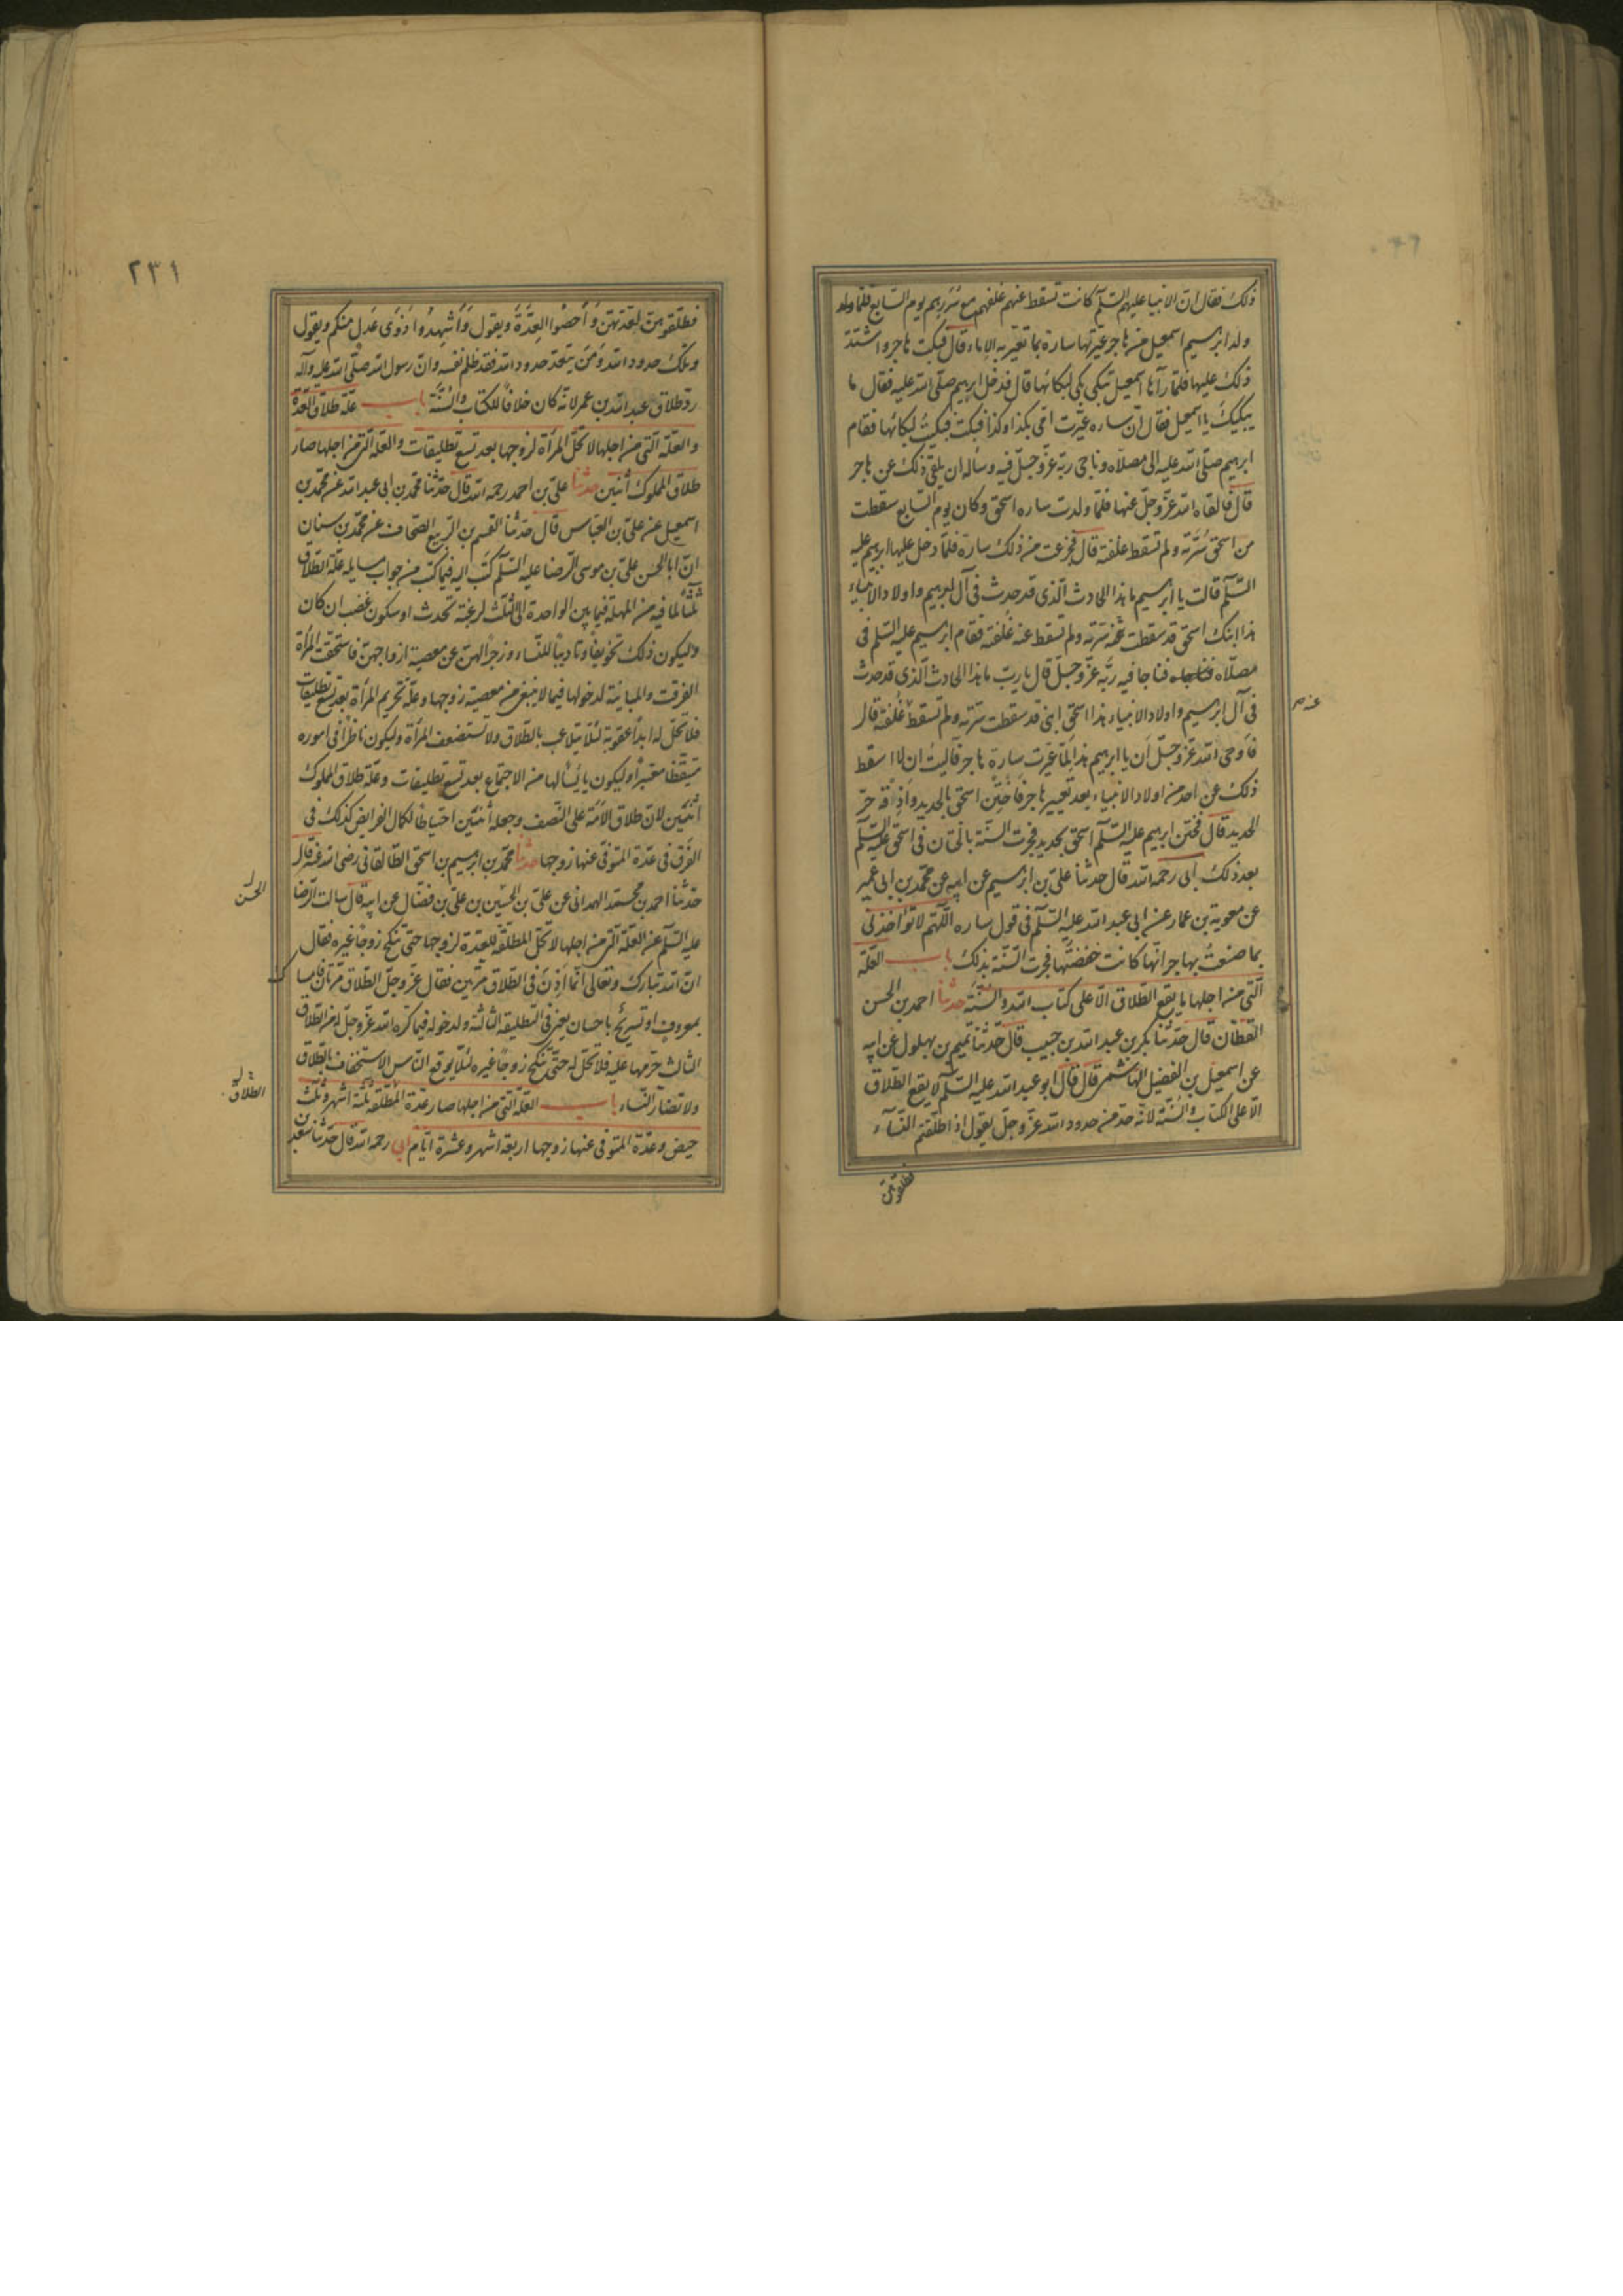 ذلك فقال ان الانبيا عليهم السلم كانت تسقط عنهم غلفهم مع سررهم يوم السابع فلما ولد
ولد ابرهيم اسمعيل من هاجر عيرتها سارة بما تعير به الاماء قال فبكت هاجر واشتد
ذلك عليها فلما رآها اسمعيل تبكي بكى لبكائها قال فدخل ابرهيم صلى الله عليه فقال ما
يبكيك يا اسمعيل فقال ان ساره عيرت امي بكذا وكذا فبكت فبكيت لبكائها فقام
ابرهيم صلى الله عليه الى مصلاه وناجى ربه عز وجل فيه وساله ان يلقى ذلك عن هاجر
قال فالقاه الله عز وجل عنها فلما ولدت ساره اسحق وكان يوم السابع سقطت
من اسحق سرته ولم تسقط غلفته قال فجزعت من ذلك سارة فلما دخل عليها ابرهيم عليه
السلم قالت يا ابرهيم ما هذا الحادث الذي قد حدث في آل ابرهيم واولاد الانبياء
هذا ابنك اسحق قد سقطت عنه سرته ولم تسقط عنه غلفته فقام ابرهيم عليه السلم في
مصلاه فناجا فيه ربه عز وجل قال يا رب ما هذا الحادث الذي قد حدث
في آل ابرهيم واولاد الانبياء هذا اسحق ابني قد سقطت سرته ولم تسقط غلفته قال
عنه
فأوحى الله عز وجل أن يا ابرهيم هذا لما عيرت سارة هاجر فآليت ان لا اسقط
ذلك عن احد من اولاد الانبياء بعد تعيير هاجر فأختن اسحق بالحديد واذقه حر
الحديد قال فختن ابرهيم عليه السلم اسحق بحديد فجرت السنة بالختان في اسحق عليه السلم
بعد ذلك ابي رحمه الله قال حدثنا علي بن ابرهيم عن ابيه عن محمد بن ابي عمير
عن معوية بن عمار عن ابي عبد الله عليه السلم في قول ساره اللهم لا تواخذني
بما صنعت بهاجر انها كانت خفضتها فجرت السنة بذلك باب العلة
التي من اجلها ما يقع الطلاق الا على كتاب الله والسنة حدثنا احمد بن الحسن
القطان قال حدثنا بكر بن عبد الله بن حبيب قال حدثنا تميم بن بهلول عن ابيه
عن اسمعيل بن الفضيل الهاشمي قال قال ابو عبد الله عليه السلم لا يقع الطلاق
الا على الكتاب والسنة لانه حد من حدود الله عز وجل يقول اذا طلقتم النساء
فطلقوهن
٢٣١
فطلقوهن لعدتهن وأحصوا العدة ويقول وأشهدوا ذوى عدل منكم ويقول
وتلك حدود الله ومن يتعد حدود الله فقد ظلم نفسه وان رسول الله صلى الله عليه وآله
رد طلاق عبد الله بن عمر لانه كان خلافا للكتاب والسنة باب علة طلاق العدة
والعلة التي من اجلها لا تحل المرأة لزوجها بعد تسع تطليقات والعلة التي من اجلها صار
طلاق المملوك أثنين حدثنا علي بن احمد رحمه الله قال حدثنا محمد بن ابي عبد الله عن محمد بن
اسمعيل عن علي بن العباس قال حدثنا القسم بن الربيع الصحاف عن محمد بن سنان
ان ابا الحسن علي بن موسى الرضا عليه السلم كتب اليه فيما كتب من جواب مسايله علة الطلاق
ثلثا لما فيه من المهلة فيما بين الواحدة الى الثلث لرغبة تحدث او سكون غضب ان كان
وليكون ذلك تخويفا وتاديبا للنساء وزجرا لهن عن معصية ازواجهن فاستحقت المرأة
الفرقت والمباينة لدخولها فيما لا ينبغي من معصية زوجها وعلة تحريم المرأة بعد تسع تطليقات
فلا تحل له ابدا عقوبة لئلا يتلاعب بالطلاق ولا تستضعف المرأة وليكون ناظرا في اموره
متيقظا معتبرا وليكون يايسا لها من الاجتماع بعد تسع تطليقات وعلة طلاق المملوك
أثنتين لان طلاق الامة على النصف وجعله اثنتين احتياطا لكمال الفرايض كذلك في
الفرق في عدة المتوفى عنها زوجها حدثنا محمد بن ابرهيم بن اسحق الطالقاني رضي الله عنه قال
حدثنا احمد بن محمد الهمداني عن علي بن الحسين بن علي بن فضال عن ابيه قال سالت الرضا
الحسن
عليه السلم عن العلة التي من اجلها لا تحل المطلقة للعدة لزوجها حتى تنكح زوجا غيره فقال
ان الله تبارك وتعالى انما اذن في الطلاق مرتين فقال عز وجل الطلاق مرتان فامسا
ك
بمعروف او تسريح باحسان يعني في التطليقة الثالثة ولدخوله فيما كره الله عز وجل له من الطلاق
الثالث حرمها عليه فلا تحل له حتى تنكح زوجا غيره لئلا يوقع الناس الاستخفاف بالطلاق
الطلاق
ولا تضار النساء باب العلة التي من اجلها صار عدة المطلقة ثلثة اشهر وثلث
حيض وعدة المتوفى عنها زوجها اربعة اشهر وعشرة ايام ابي رحمه الله قال حدثنا سعد بن